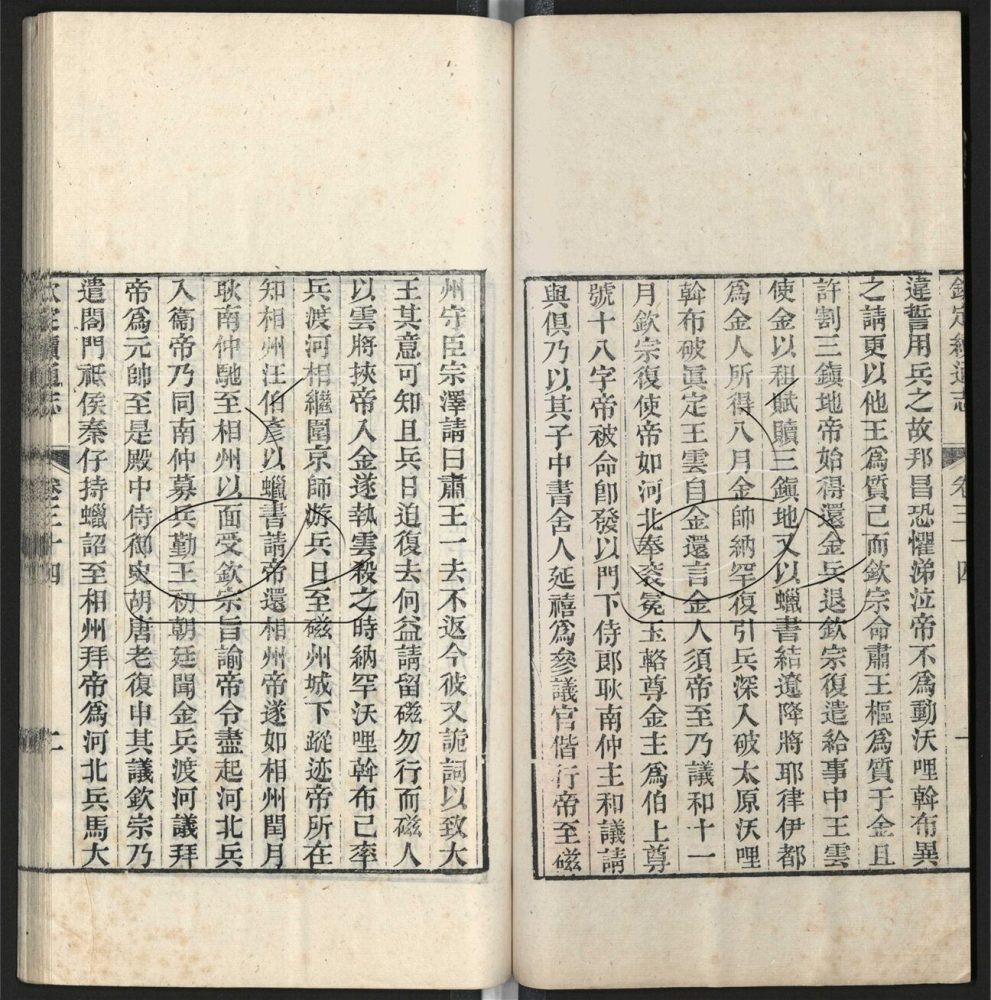 欽定續通志 卷三十四 一
違誓用兵之故邦昌恐懼涕泣帝不為動沃哩斡布異
之請更以他王為質已而欽宗命肅王樞為質于金且
許割三鎮地帝始得還金兵退欽宗復遣給事中王雲
使金以租賦贖三鎮地又以蠟書結遼降將耶律伊都
為金人所得八月金帥納罕復引兵深入破太原沃哩
斡布破真定王雲自金還言金人須帝至乃議和十一
月欽宗復使帝如河北奉袞冕玉輅尊金主為伯上尊
號十八字帝被命即發以門下侍郎耿南仲主和議請
與俱乃以其子中書舍人延禧為參議官偕行帝至磁
州守臣宗澤請曰肅王一去不返今彼又詭詞以致大
王其意可知且兵日迫復去何益請留磁勿行而磁人
以雲將挾帝入金遂執雲殺之時納罕沃哩斡布已率
兵渡河相繼圍京師游兵日至磁州城下蹤迹帝所在
知相州汪伯彥以蠟書請帝還相州帝遂如相州閏月
耿南仲馳至相州以面受欽宗旨諭帝令盡起河北兵
入衞帝乃同南仲募兵勤王初朝廷聞金兵渡河議拜
帝為元帥至是殿中侍御史胡唐老復申其議欽宗乃
遣閤門祗侯秦仔持蠟詔至相州拜帝為河北兵馬大
欽定續通志 卷三十四 二